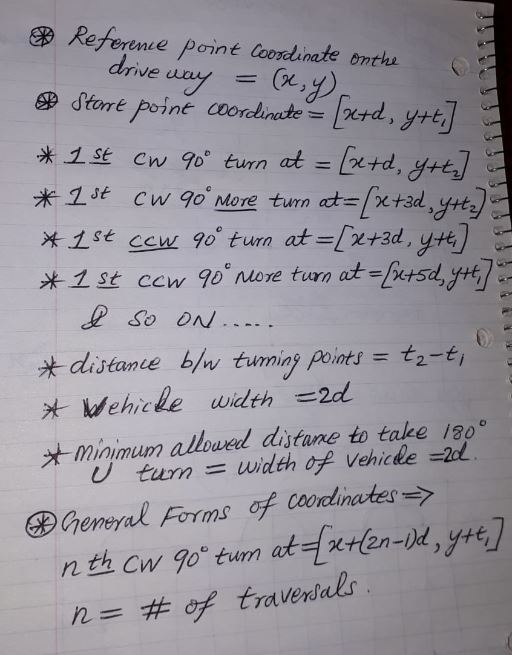 ⊛ Reference point Coordinate on the
drive way = (x,y)
⊛ Start point coordinate = [x+d, y+t₁]
* 1st CW 90° turn at = [x+d, y+t₂]
* 1st CW 90° More turn at = [x+3d, y+t₂]
* 1st ccw 90° turn at = [x+3d, y+t₁]
* 1st ccw 90° More turn at = [x+5d, y+t₁]
& SO ON.....
* distance b/w turning points = t₂-t₁
* Vehicle width = 2d
* minimum allowed distance to take 180°
U turn = width of vehicle = 2d.
⊛ General Forms of coordinates ⇒
nth CW 90° turn at = [x+(2n-1)d, y+t₁]
n = # of traversals.